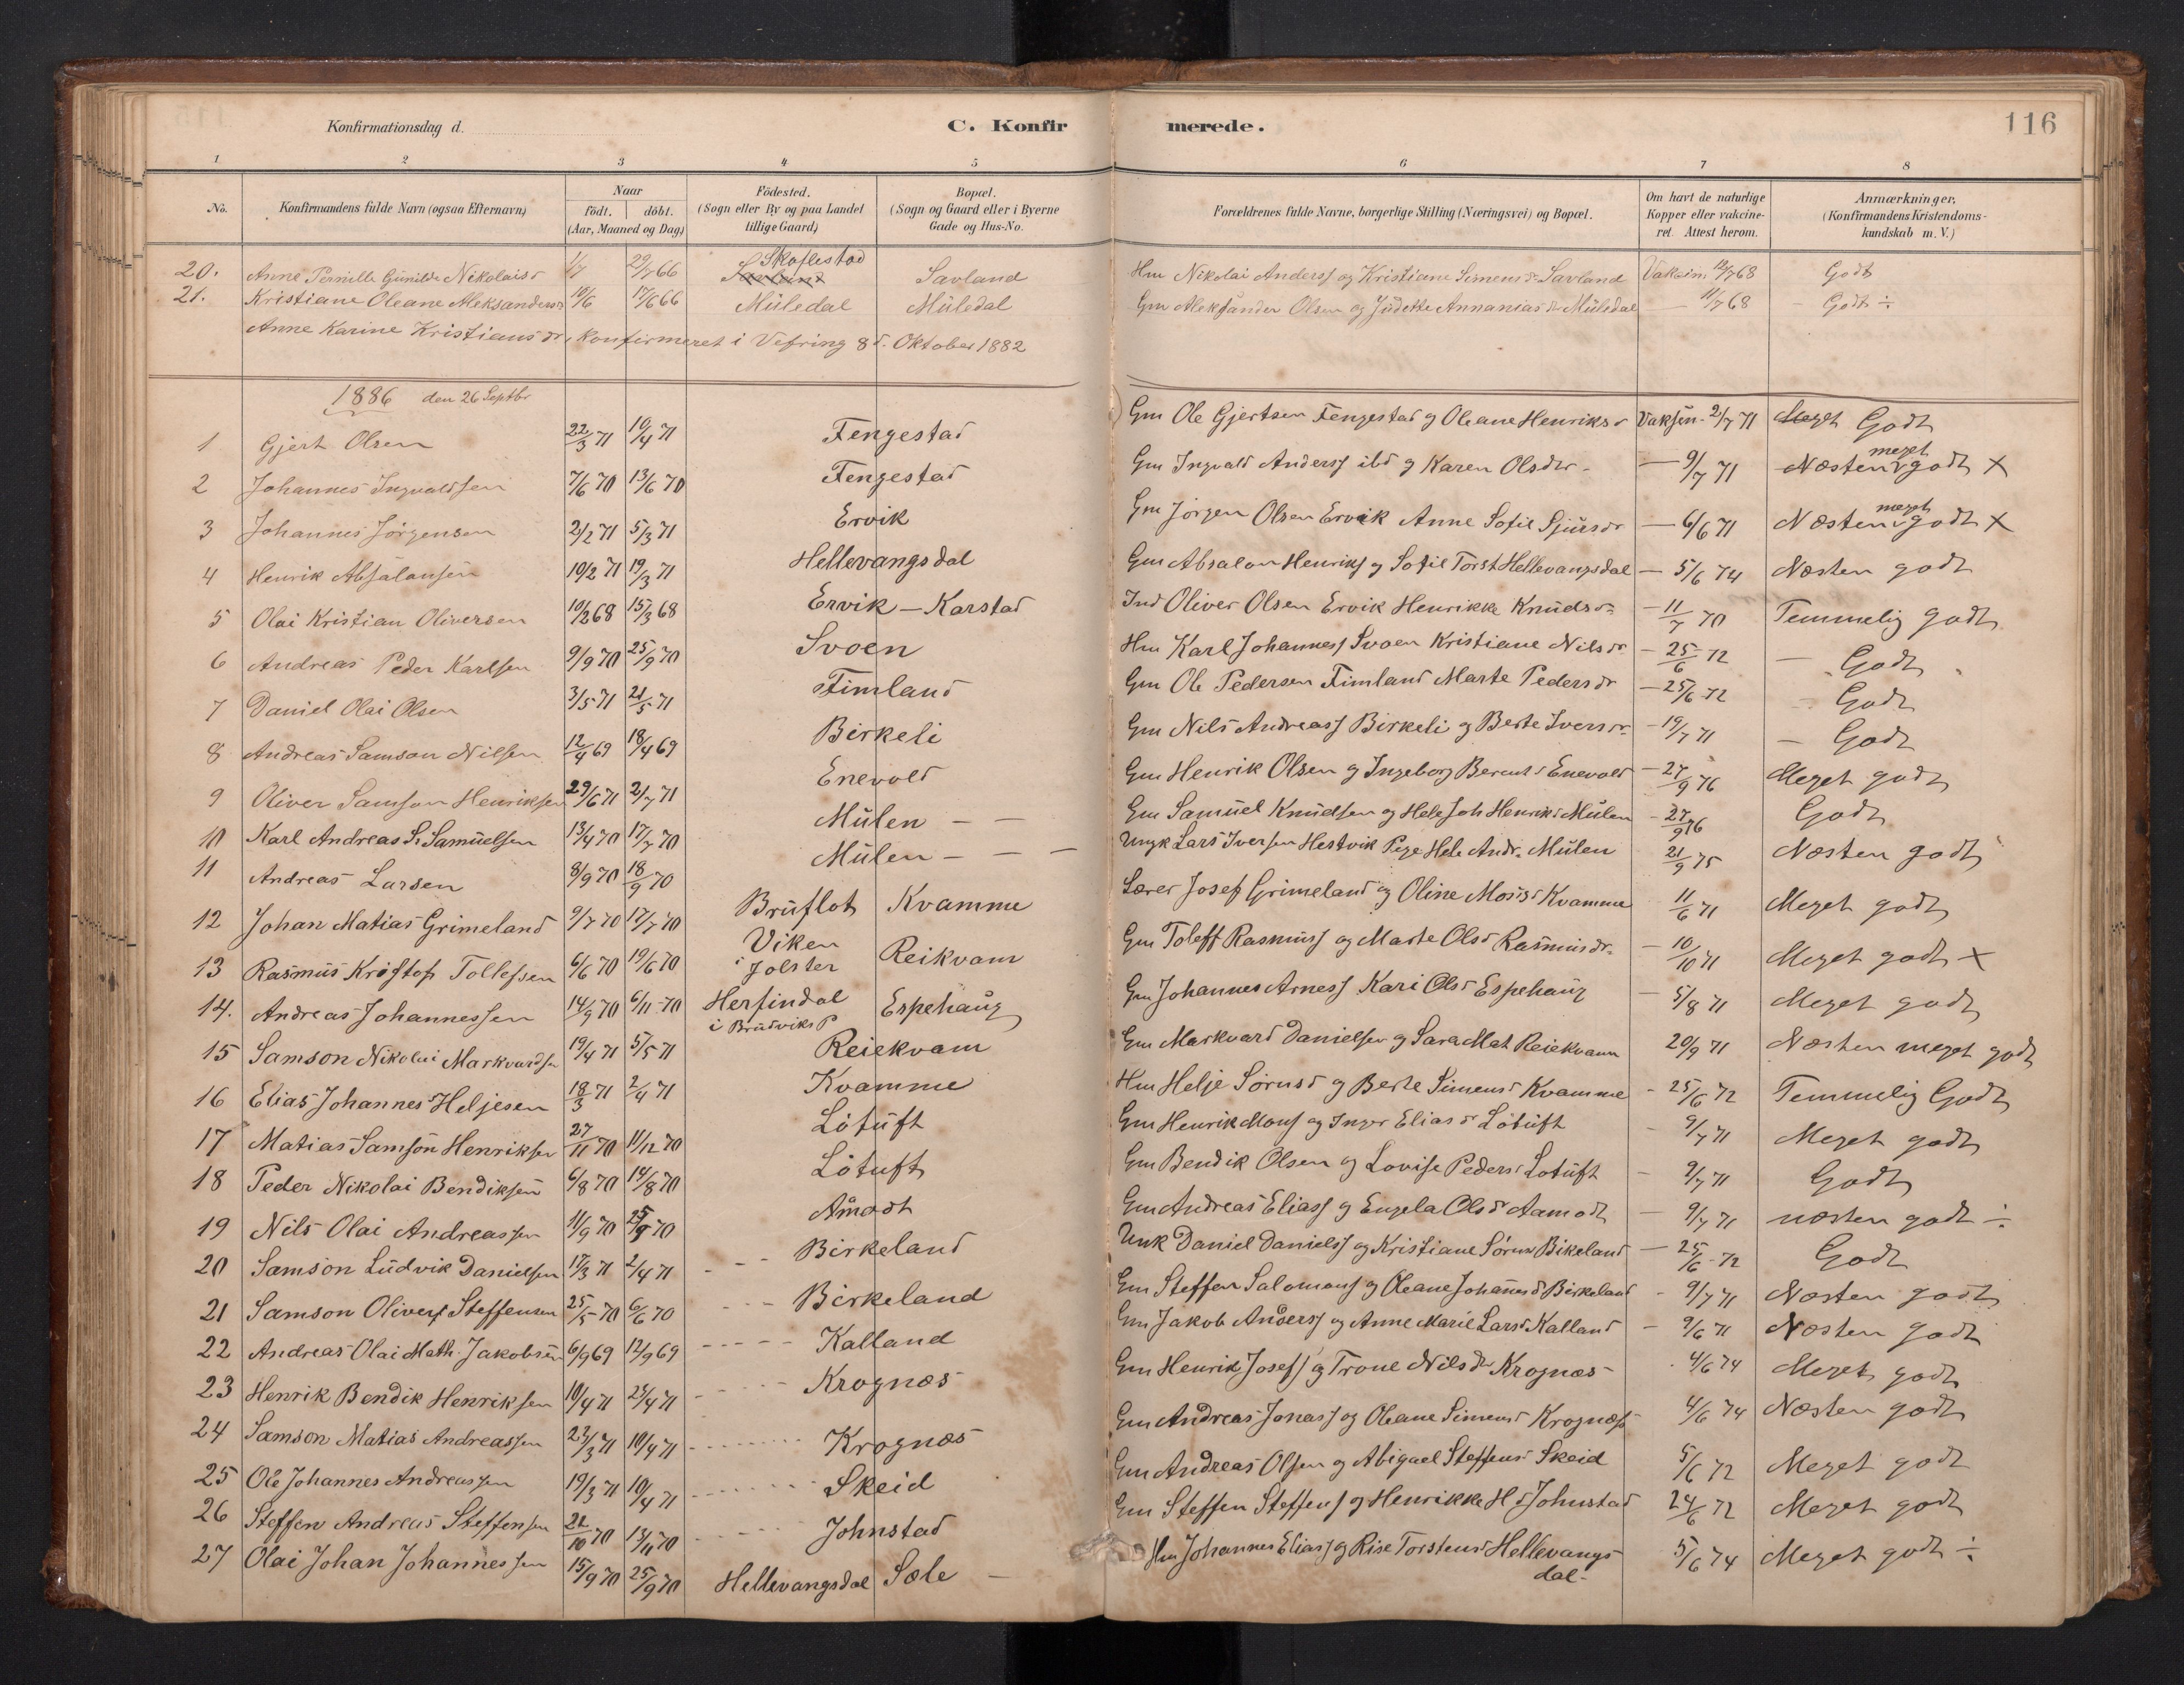 116
Konfirmationsdag d.
C. Konfirmerede.
1 2 3 4 5 6 7 8
No. Konfirmandens fulde Navn (ogsaa Efternavn) Naar födt. döbt. (Aar, Maaned og Dag) Födested. (Sogn eller By og paa Landet tillige Gaard) Bopæl. (Sogn og Gaard eller i Byerne Gade og Hus-No. Forældrenes fulde Navne, borgerlige Stilling (Næringsvei) og Bopæl. Om havt de naturlige Kopper eller vakcineret. Attest herom. Anmærkninger, (Konfirmandens Kristendomskundskab m. V.)
20. Anne Pernille Gunilde Nikolaisd 1/7 29/7 66 Skaflestad Savland Hm Nikolai Anderss og Kristiane Simensdr Savland Vakcin. 12/7 68 Godt
21. Kristiane Oleane Aleksandersd 10/6 17/6 66 Müledal Müledal Gm Aleksander Olsen og Judette Annaniasdr Müledal – 11/7 68 – Godt ÷
Anne Karine Kristiansdr, konfirmeret i Vefring 8d. Oktober 1882
1886 den 26 Septbr
1 Gjert Olsen 22/3 71 10/4 71 Fengestad Gm Ole Gjertsen Fengestad og Oleane Henriksd Vaksin. 2/7 71 Meget Godt
2 Johannes Ingvaldsen 7/6 70 13/6 70 Fengestad Gm Ingvald Anderss ibd og Karen Olsdtr – 9/7 71 Næsten meget godt X
3 Johannes Jørgensen 2/2 71 5/3 71 Ervik Gm Jørgen Olsen Ervik Anne Sofie Sjursdr – 6/6 71 Næsten meget godt X
4 Henrik Absalonsen 10/2 71 19/3 71 Hellevangsdal Gm Absalon Henriks og Sofie Torst Hellevangsdal – 5/6 74 Næsten godt
5 Olai Kristian Oliversen 10/2 68 15/3 68 Ervik – Karstad Ind Oliver Olsen Ervik Henrikke Knudsdr – 11/7 70 Temmelig godt
6 Andreas Peder Karlsen 9/9 70 25/9 70 Svoen Hm Karl Johanness Svoen Kristiane Nilsdr – 25/6 72 – Godt
7 Daniel Olai Olsen 3/5 71 21/5 71 Fimland Gm Ole Pedersen Fimland Marte Pedersdr – 25/6 72 – Godt
8 Andreas Samson Nilsen 12/4 69 18/4 69 Birkeli Gm Nils Andreass Birkeli og Berte Iversdr – 19/7 71 – Godt
9 Oliver Samson Henriksen 29/6 71 2/7 71 Enevold Gm Henrik Olsen og Ingeborg Berentsd Enevold – 27/9 76 Meget godt
10 Karl Andreas S. Samuelsen 13/4 70 17/7 70 Mülen – – Gm Samuel Knudsen og Hele Joh Henriksd Mülen – 27/9 76 Godt
11 Andreas Larsen 8/9 70 18/9 70 Mülen – – – Ungk Lars Iversen Hestvik Pige Hele Andr. Mülen 21/9 75 Næsten godt
12 Johan Matias Grimeland 9/7 70 17/7 70 Bruflot Kvamme Lærer Josef Grimeland og Oline Mosisd Kvamme 11/6 71 Meget godt
13 Rasmus Kristof Tollefsen 6/6 70 19/6 70 Viken i Jølster Reikvam Gm Toleff Rasmuss og Marte Olsd Rasmusdr. – 10/10 71 Meget godt X
14. Andreas Johannessen 14/9 70 6/11 70 Herfindal i Brudviks P Espehaug Gm Johannes Arness Kari Olsd Espehaug – 5/8 71 Meget godt
15 Samson Nikolai Markvardsen 19/4 71 5/5 71 Reiekvam Gm Markvard Danielsen og Sara Mat Reiekvam 20/9 71 Næsten meget godt
16 Elias Johannes Heljesen 18/3 71 2/4 71 Kvamme Hm Helje Sørnsd og Berte Simensd Kvamme – 25/6 72 Temmelig Godt
17 Matias Samson Henriksen 27/11 70 11/12 70 Løtuft Gm Henrik Mons og Inger Eliasd Løtuft – 9/7 71 Meget godt
18 Peder Nikolai Bendiksen 6/8 70 14/8 70 Løtuft Gm Bendik Olsen og Lovise Pedersd Løtuft – 9/7 71 Godt
19 Nils Olai Andreassen 11/9 70 25/9 70 Åmodt Gm Andreas Eliass og Engela Olsdr Aamodt – 9/7 71 næsten godt ÷
20 Samson Ludvik Danielsen 17/3 71 2/4 71 – – – Birkeland Unk Daniel Daniels og Kristiane Sørnsd Bikeland – 25/6 72 Godt
21 Samson Oliver Steffensen 25/5 70 6/6 70 – – – Birkeland Gm Steffen Salomons og Oleane Johannsd Birkeland – 9/7 71 Næsten godt
22 Andreas Olai Math. Jakobsen 6/9 69 12/9 69 – – – – Kalland Gm Jakob Anders og Anne Marie Larsd Kalland – 9/6 71 Næsten godt
23 Henrik Bendik Henriksen 10/4 71 23/4 71 – – – – Krognæs Gm Henrik Josefs og Trone Nilsdr Krognæs – 4/6 74 Meget godt
24 Samson Matias Andreassen 23/3 71 10/4 71 – – – – Krognæs Gm Andreas Jonass og Oleane Simensd Krognæss 4/6 74 Næsten godt
25 Ole Johannes Andreassen 19/3 71 10/4 71 – – – – Skeid Gm Andreas Olsen og Abigael Steffensd Skeid 5/6 72 Meget godt
26 Steffen Andreas Steffensen 21/10 70 13/11 70 – – – – Johnstad Gm Steffen Steffens og Henrikke H d Johnstad 24/6 72 Meget godt
27 Olai Johan Johannessen 15/9 70 25/9 70 Hellevangsdal Sæle – Hm Johannes Eliass og Rise Torstensd Hellevangsdal- 5/6 74 Meget godt ÷